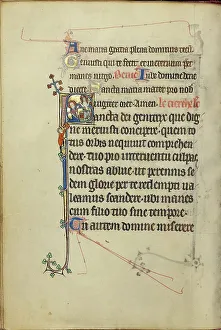 Ave maria gratia plena dominus tecū
Genuisti qui te fecit et in eternum per
manes virgo. Tu autem domine
Sancta maria mater pro nob
Amen.
Sancta dei genitrix que dig
ne meruisti concipere quem to
tus orbis nequivit comprehen
dere tuo pio interventu culpas
nostras ablue ut perennis se
dem glorie per te redempti va
leamus scandere ubi manes
cum filio tuo sine tempore
Tu autem domine miserere